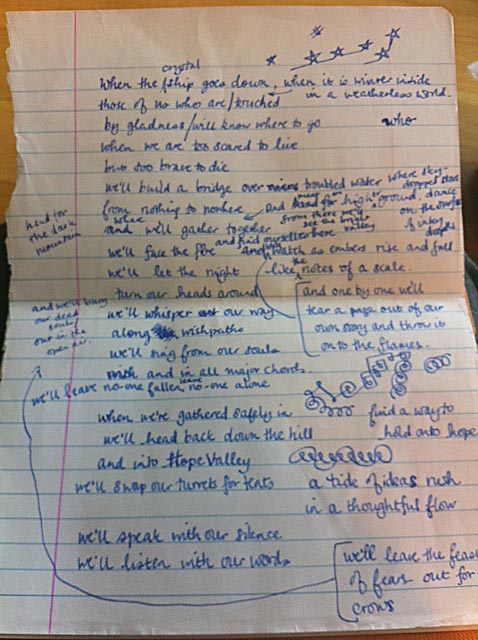 crystal
When the ship goes down, when it is winter inside
those of us who are/touched in a weatherless world.
by gladness/will know where to go who
when we are too scared to live
but too brave to die
we'll build a bridge over troubled water where sky-
from nothing to nowhere and head for higher ground, dance
dropped stars
on the surface
of inky
depths
where from there we'll
see the bright
valley
head for
the dark
mountain
and we'll gather together
and find ourselves here
we'll face the fire and watch as embers rise and fall
we'll let the night like the notes of a scale.
turn our heads around
and we'll bury
our dead
souls
out in the
open air.
and one by one we'll
tear a page out of our
own story and throw it
onto the flames.
we'll whisper our way
along wishpaths
we'll sing from our souls
and in all major chords.
we'll leave no-one fallen, leave no-one alone
when we're gathered safely in find a way to
we'll head back down the hill hold onto hope
and into Hope Valley
we'll swap our turrets for tents a tide of ideas rush
in a thoughtful flow
we'll speak with our silence
we'll listen with our words
we'll leave the feast
of fears out for
crows